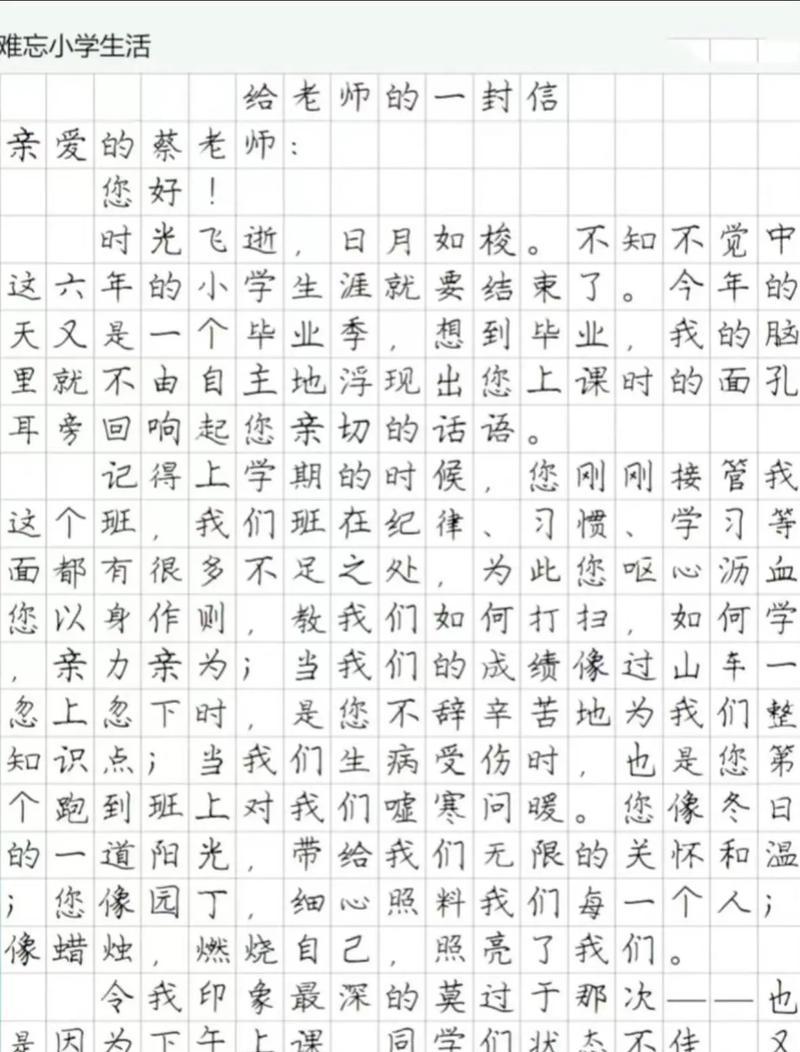 难忘小学生活
给老师的一封信
亲爱的蔡老师：
您好！
时光飞逝，日月如梭。不知不觉中
这六年的小学生涯就要结束了。今年的
天又是一个毕业季，想到毕业，我的脑
里就不由自主地浮现出您上课时的面孔
耳旁回响起您亲切的话语。
记得上学期的时候，您刚刚接管我
这个班，我们班在纪律、习惯、学习等
面都有很多不足之处，为此您呕心沥血
您以身作则，教我们如何打扫，如何学
，亲力亲为；当我们的成绩像过山车一
忽上忽下时，是您不辞辛苦地为我们整
知识点；当我们生病受伤时，也是您第
个跑到班上对我们嘘寒问暖。您像冬日
的一道阳光，带给我们无限的关怀和温
；您像园丁，细心照料我们每一个人；
像蜡烛，燃烧自己，照亮了我们。
令我印象最深的莫过于那次——也
是因为下午上课 同学们状态不佳 又